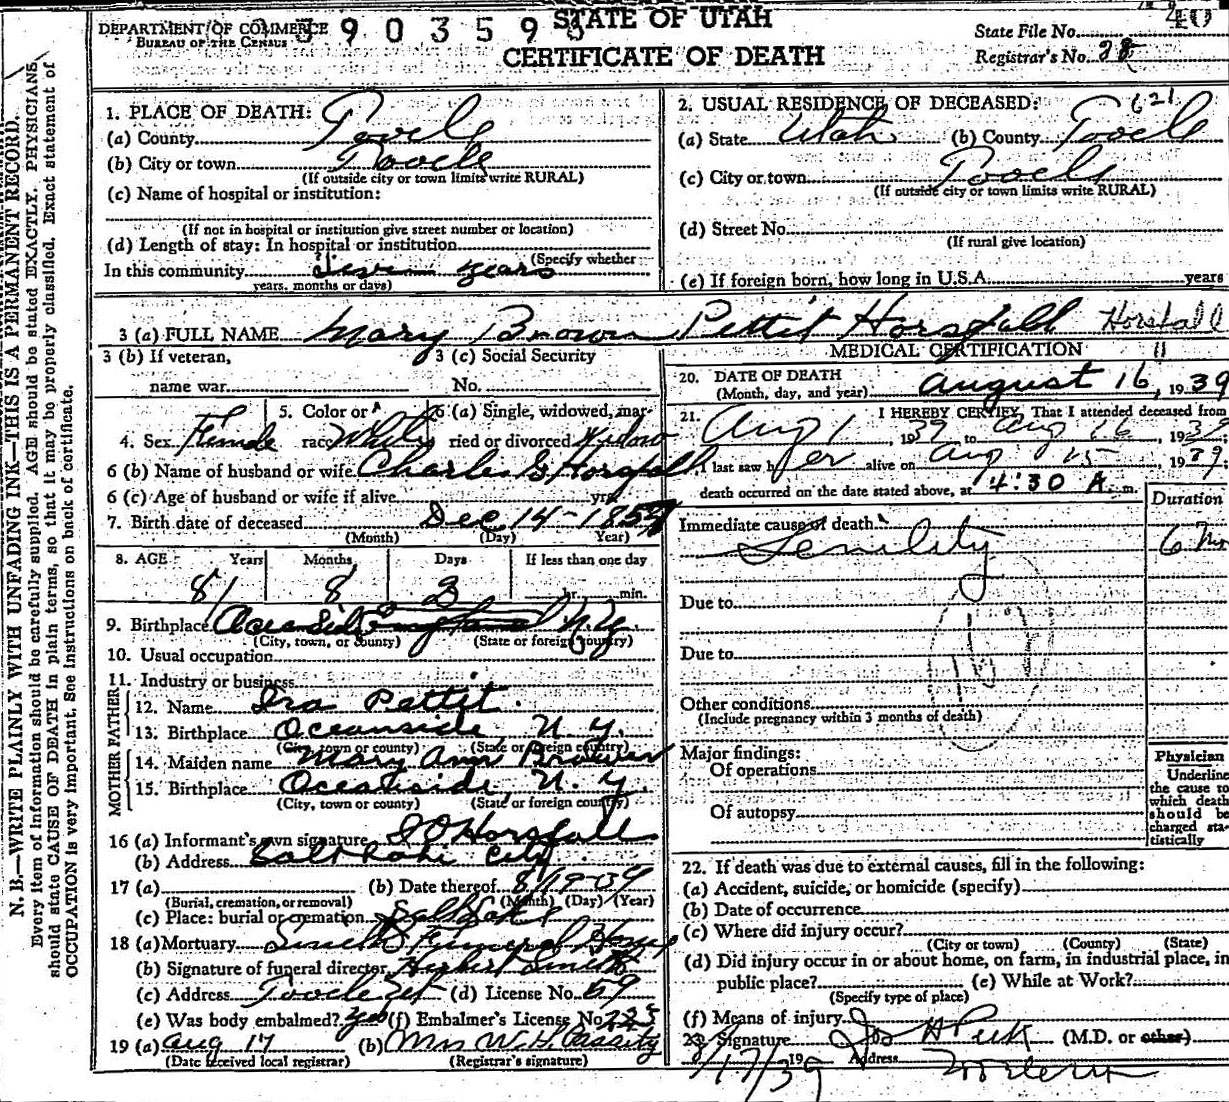 STATE OF UTAH
CERTIFICATE OF DEATH
DEPARTMENT OF COMMERCE
BUREAU OF THE CENSUS
3903595
40
State File No.
Registrar's No. 28
N. B.—WRITE PLAINLY WITH UNFADING INK—THIS IS A PERMANENT RECORD.
Every item of information should be carefully supplied. AGE should be stated EXACTLY. PHYSICIANS
should state CAUSE OF DEATH in plain terms, so that it may be properly classified. Exact statement of
OCCUPATION is very important. See instructions on back of certificate.
1. PLACE OF DEATH:
(a) County Tooele
(b) City or town Tooele
(If outside city or town limits write RURAL)
(c) Name of hospital or institution:
(If not in hospital or institution give street number or location)
(d) Length of stay: In hospital or institution
(Specify whether
In this community Seven years
years, months or days)
2. USUAL RESIDENCE OF DECEASED: 621
(a) State Utah (b) County Tooele
(c) City or town Tooele
(If outside city or town limits write RURAL)
(d) Street No.
(If rural give location)
(e) If foreign born, how long in U.S.A. years
3 (a) FULL NAME Mary Brown Pettit Horsfall Horsfall
3 (b) If veteran,
name war
3 (c) Social Security
No.
4. Sex Female
5. Color or
race White
6 (a) Single, widowed, mar-
ried or divorced Widow
6 (b) Name of husband or wife Charles G Horsfall
6 (c) Age of husband or wife if alive yrs.
7. Birth date of deceased Dec 14-1857
(Month) (Day) Year)
8. AGE Years Months Days If less than one day
81 8 2 hr. min.
9. Birthplace Oceanside N.Y.
(City, town, or county) (State or foreign country)
10. Usual occupation
11. Industry or business
FATHER
12. Name Ira Pettit
13. Birthplace Oceanside N.Y.
(City, town or county) (State or foreign country)
MOTHER
14. Maiden name Mary Ann Brower
15. Birthplace Oceanside, N.Y.
(City, town or county) (State or foreign country)
16 (a) Informant's own signature Horsfall
(b) Address Salt Lake City
17 (a) (b) Date thereof 8/19-39
(Burial, cremation, or removal) (Month) (Day) (Year)
(c) Place: burial or cremation Salt Lake
18 (a) Mortuary Smith Funeral Home
(b) Signature of funeral director Herbert Smith
(c) Address Tooele Ut (d) License No. 59
(e) Was body embalmed? Yes (f) Embalmer's License No. 223
19 (a) Aug 17 (b) Mrs W.H. Cassity
(Date received local registrar) (Registrar's signature)
MEDICAL CERTIFICATION
20. DATE OF DEATH
(Month, day, and year) August 16, 1939
21. I HEREBY CERTIFY, That I attended deceased from
Aug 1 1939 to Aug 16, 1939
I last saw her alive on Aug 15, 1939.
death occurred on the date stated above, at 4:30 A. m.
Duration
Immediate cause of death
Senility 6 Mo
Due to
Due to
Other conditions
(Include pregnancy within 3 months of death)
Major findings:
Of operations
Of autopsy
Physician
Underline
the cause to
which death
should be
charged sta-
tistically
22. If death was due to external causes, fill in the following:
(a) Accident, suicide, or homicide (specify)
(b) Date of occurrence
(c) Where did injury occur?
(City or town) (County) (State)
(d) Did injury occur in or about home, on farm, in industrial place, in
public place? (e) While at Work?
(Specify type of place)
(f) Means of injury
23. Signature Jos H Peck (M.D. or other)
8/17/39 19 Address Tooele Ut